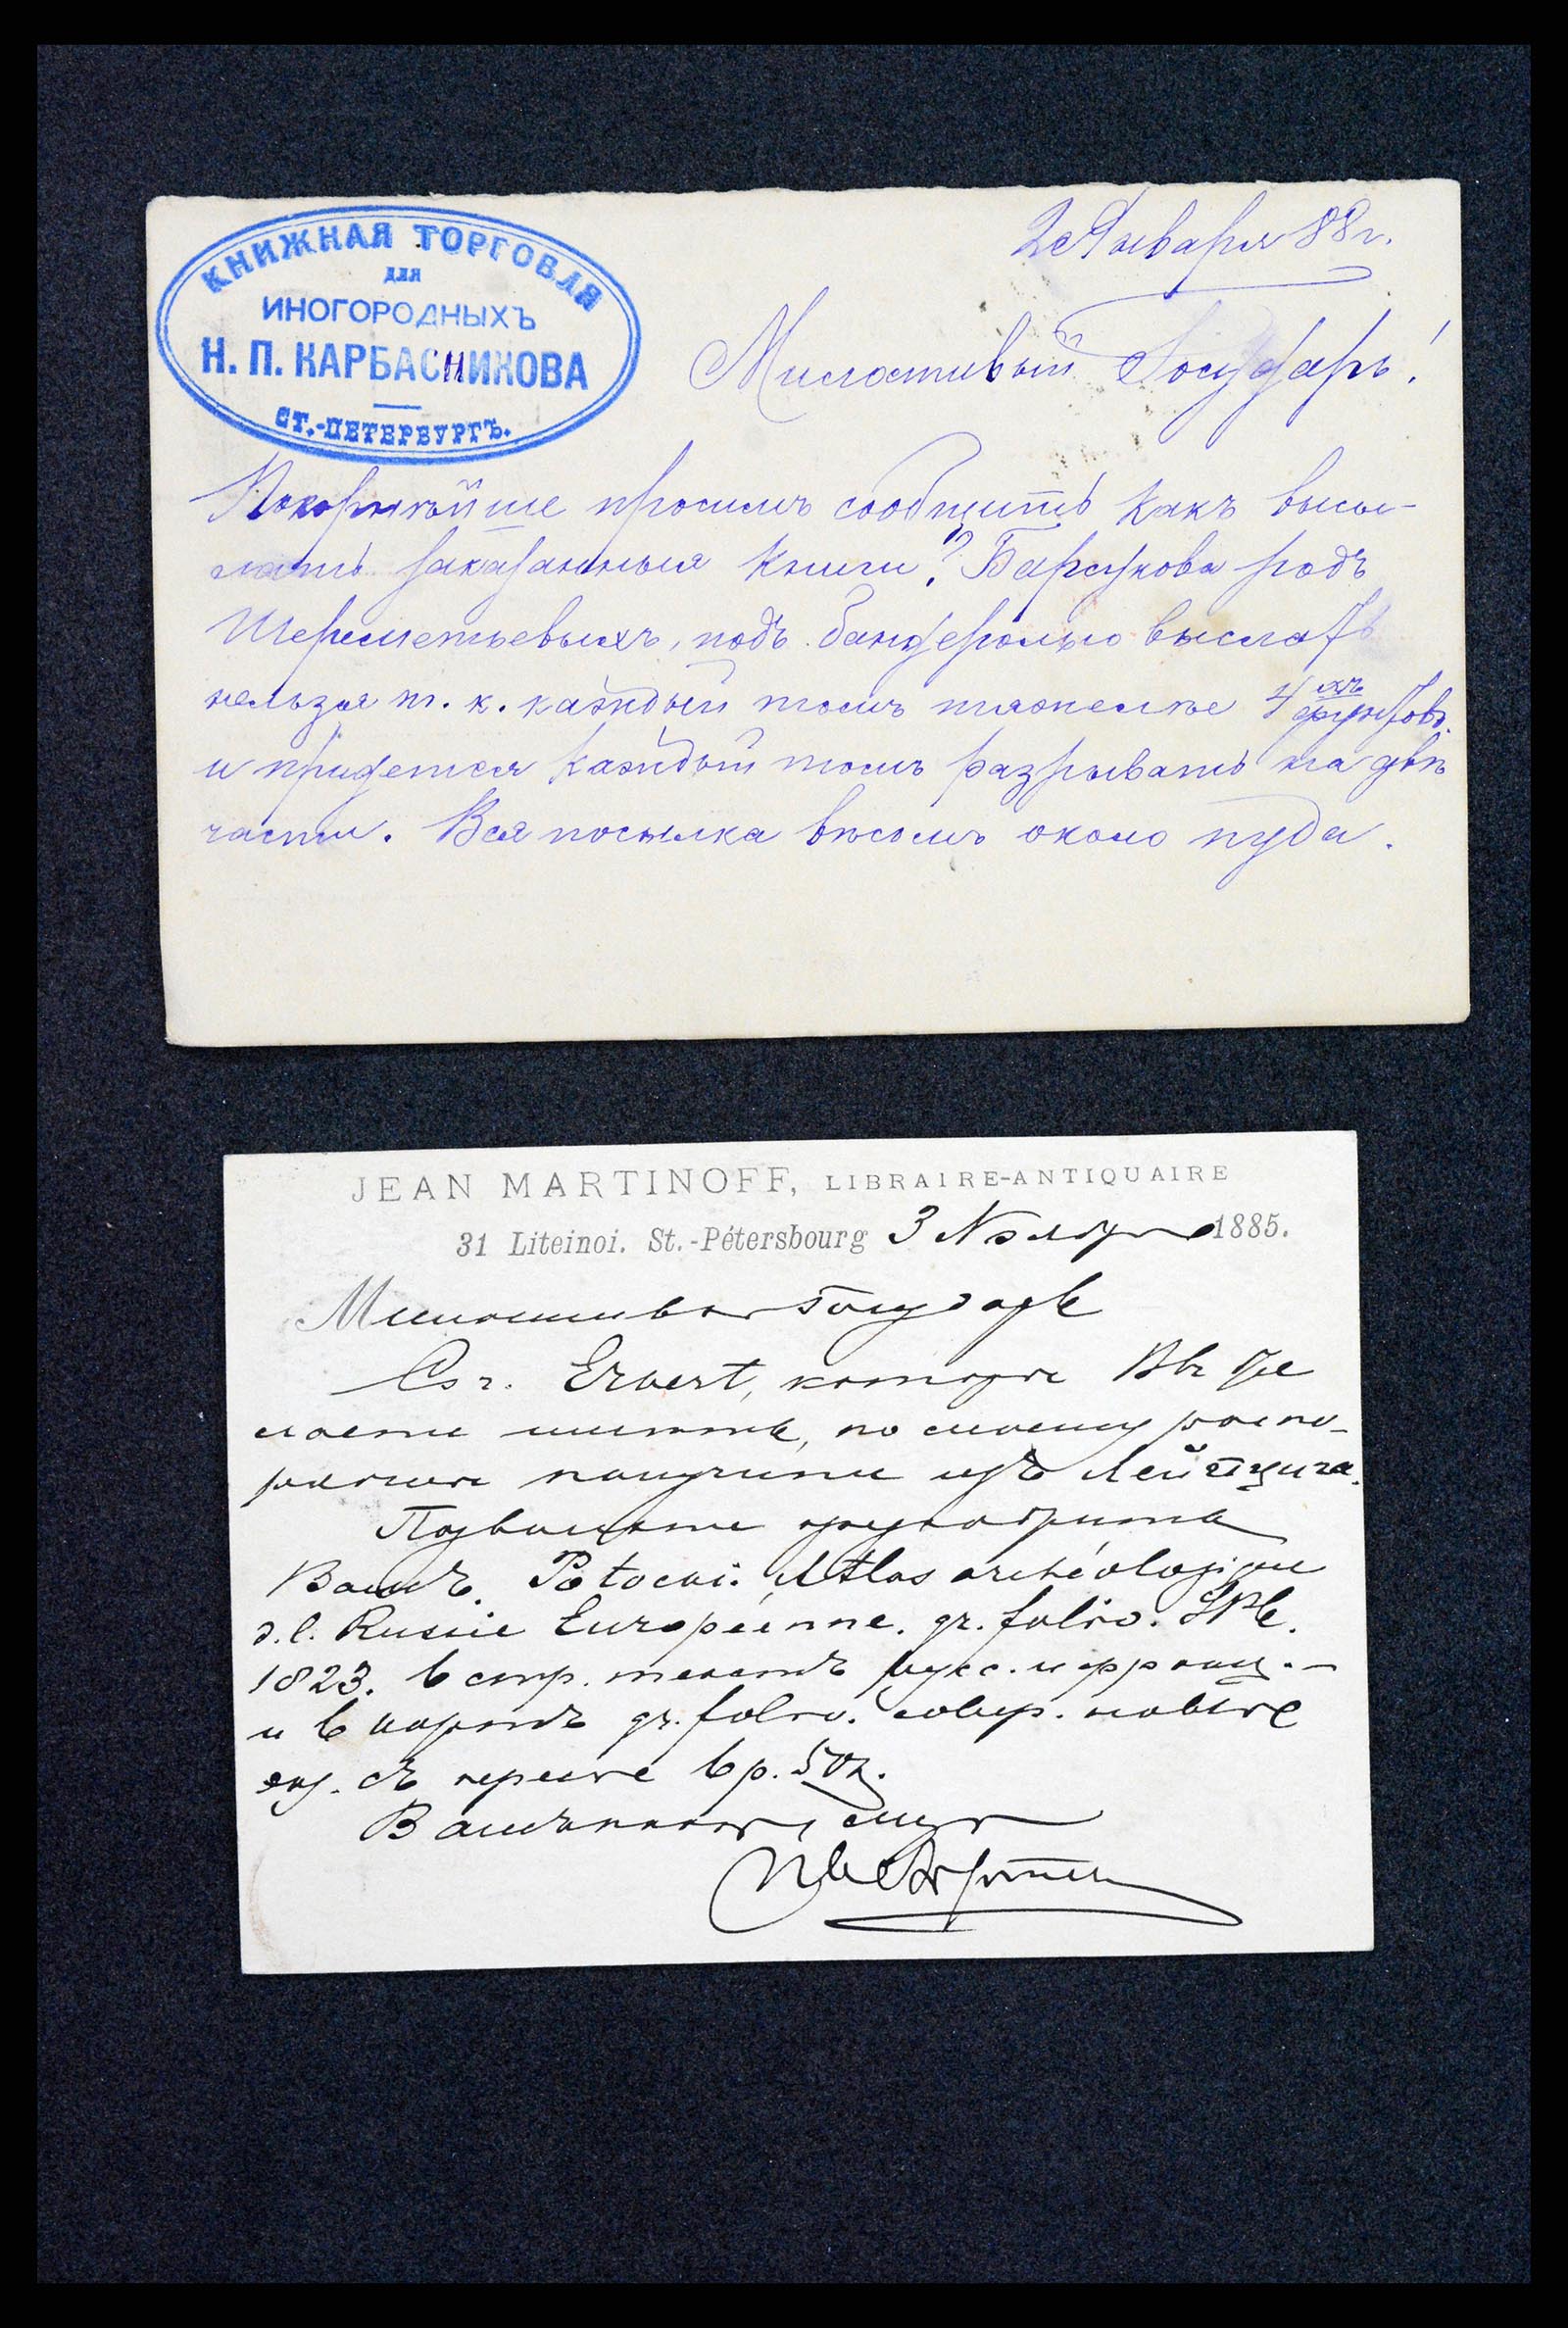 КНИЖНАЯ ТОРГОВЛЯ
для
ИНОГОРОДНЫХЪ
Н. П. КАРБАСНИКОВА
СТ.-ПЕТЕРБУРГЪ.
2 Января 88 г.
Милостивый Государь!
Покорнѣйше просимъ сообщить какъ высы-
лать заказанныя книги? Барсукова родъ
Шереметьевыхъ, подъ бандеролью выслать
нельзя т. к. каждый томъ тяжелѣе 4хъ фунтовъ.
и придется каждый томъ разрывать на двѣ
части. Вся посылка вѣсомъ около пуда.
JEAN MARTINOFF, LIBRAIRE-ANTIQUAIRE
31 Liteinoi. St.-Pétersbourg 3 Ноября 1885.
Милостивый Государь
 Erbert, которые Вы же
лаете имѣть, по моему распо-
ряженію получите изъ Лейпцига.
Позвольте предложить
Вамъ. Potocki. Atlas archéologique
d. l. Russie Européenne. gr. folio. СПб.
1823. 6 стр. текстъ русс. и франц. —
и 6 картъ gr. folio. совер. новые
экз. съ перес. 6 р. 50 к.